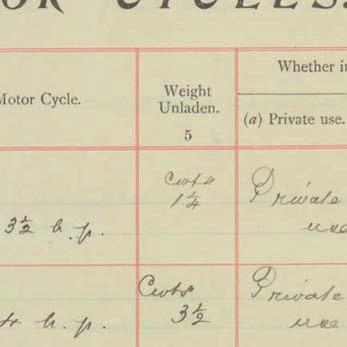 OR CYCLES.
Motor Cycle.
Weight
Unladen.
5
Whether i
(a) Private use.
Cwts
1¼
3½ h.p.
Private
use
Cwts
3½
4 h.p.
Private
use